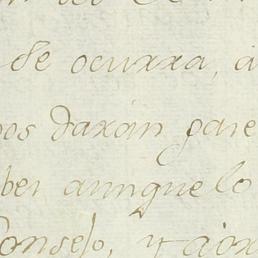 de ocurra, a
os daran pare
ber aunque lo
Consejo, y a